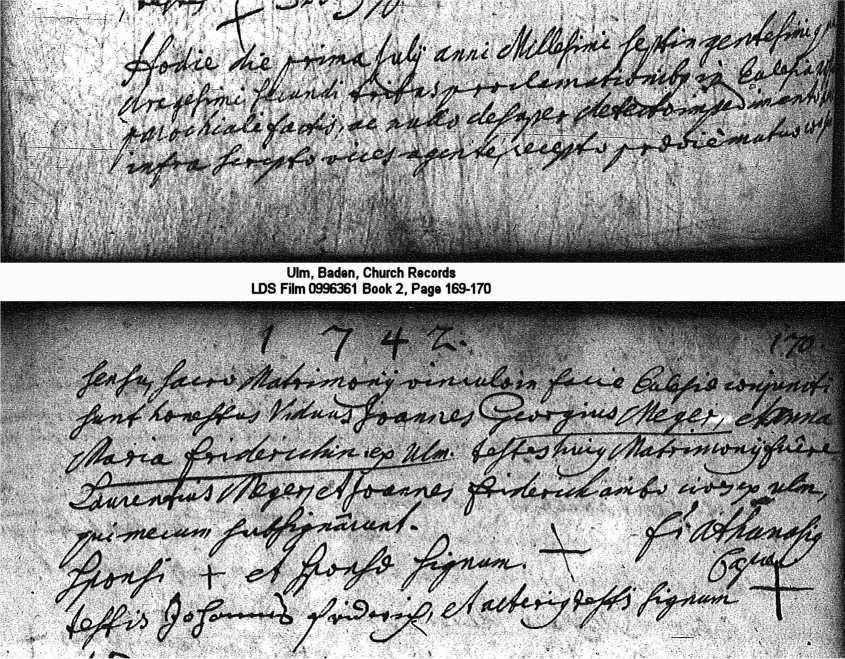 Hodie die prima Julij anni Millesimi septingentesimi
dragesimi secundi tribus proclamationibg in Ecclesia
parochiale factis, ac nullo desuper detecto impedimento
infra scripto vices agente, recepto prævie mutuo
Ulm, Baden, Church Records
LDS Film 0996361 Book 2, Page 169-170
1742.
170
sensu, sacro Matrimonij vinculo in facie Ecclesiæ conjuncti
sunt honestus Viduus Joannes Georgius Meger, et Anna
Maria friderichin ex Ulm. testes huig Matrimonij fuêre
Laurentius Meger, et Joannes friderich ambo cives ex ulm,
qui mecum subsignârunt.
f: Athanasig
Sponsi + et Sponsæ signum. +
testis Johannis friderich, et alterig testis signum +